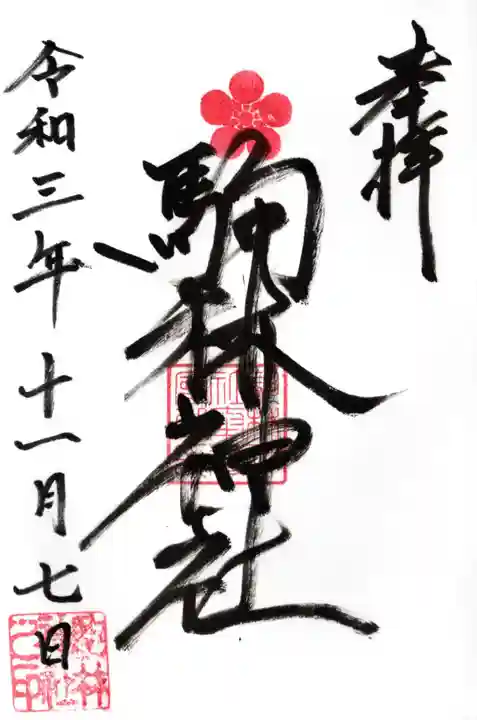 奉拝
駒林神社
令和三年十一月七日